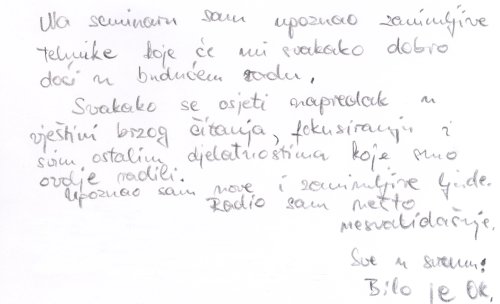 Na seminaru sam upoznao zanimljive
tehnike koje će mi svakako dobro
doći u budućem radu.
Svakako se osjeti napredak u
vještini brzog čitanja, fokusiranju i
svim ostalim djelatnostima koje smo
ovdje radili.
Upoznao sam nove i zanimljive ljude.
Radio sam nešto
nesvakidašnje.
Sve u svemu:
Bilo je OK.